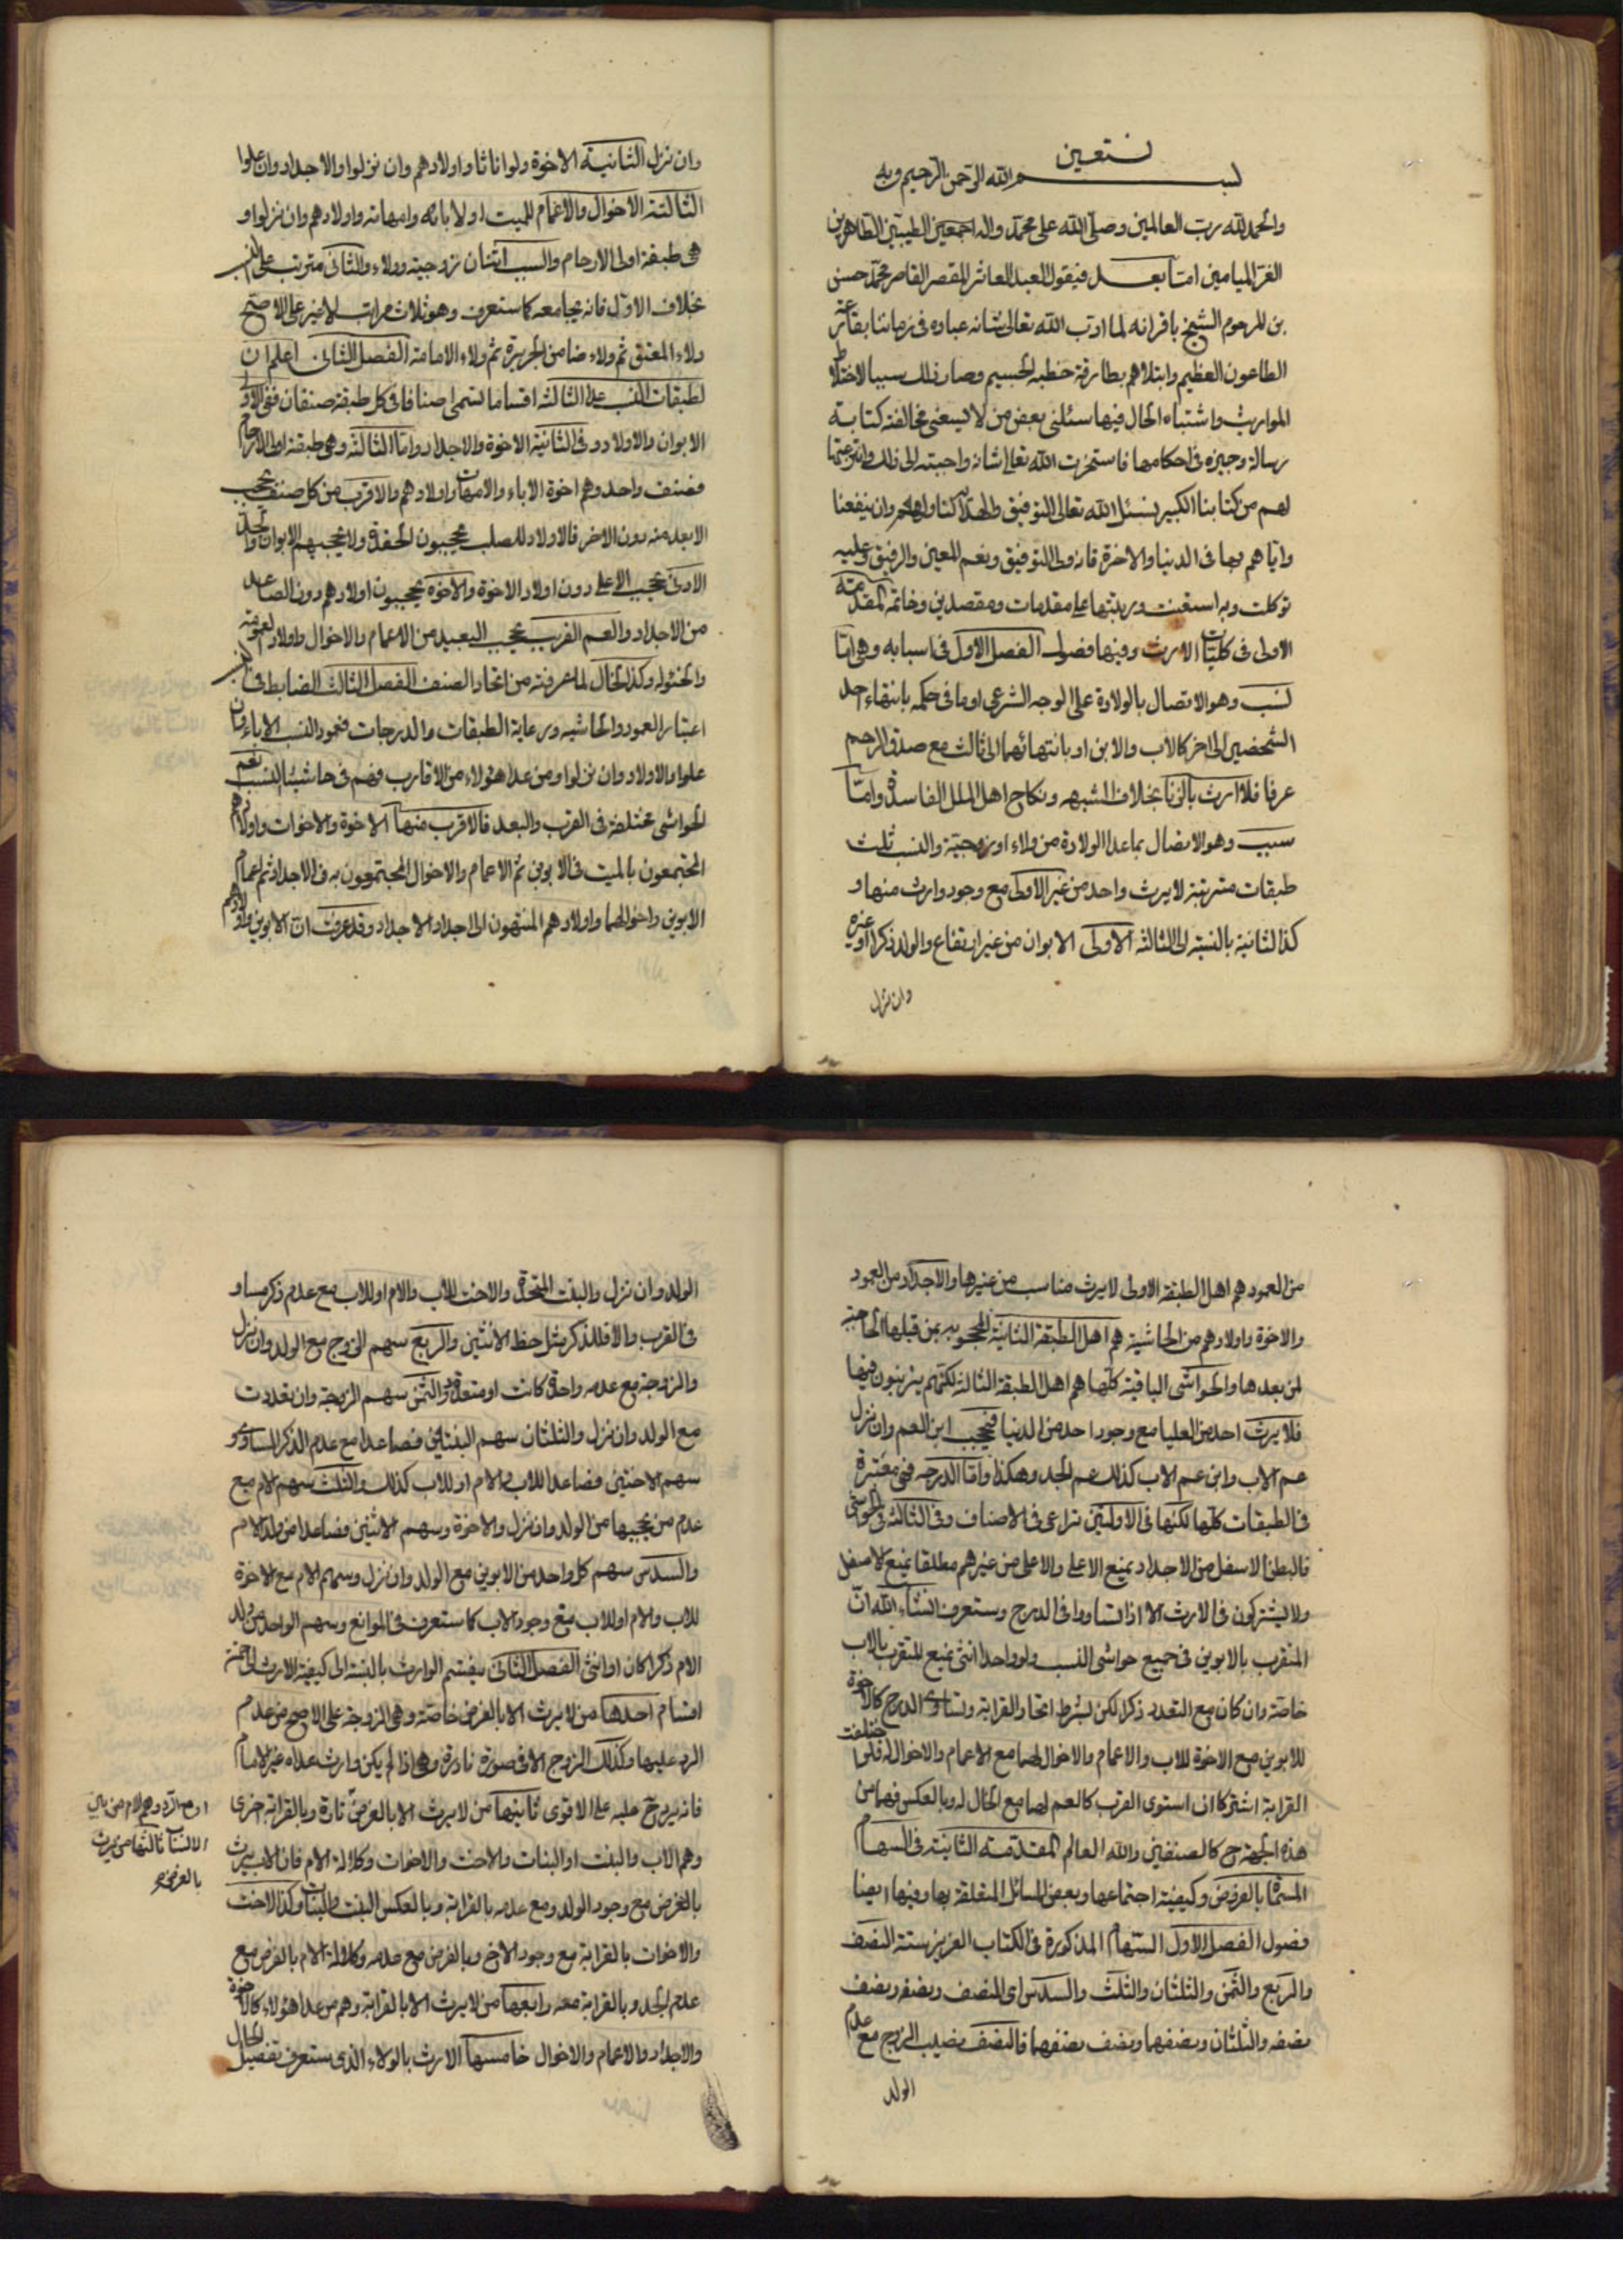 بسم الله الرحمن الرحيم وبه
نستعين
والحمد لله رب العالمين وصلى الله على محمد واله اجمعين الطيبين الطاهرين
الغر الميامين اما بعد فيقول العبد العاثر المقصر القاصر محمد حسن
بن المرحوم الشيخ باقر انه لما ادب الله تعالى شانه عباده في زماننا بقارعة
الطاعون العظيم وابتلاهم بطارقة خطبه الجسيم وصار ذلك سببا لاختلاط
المواريث واشتباه الحال فيها سئلني بعض من لا يسعني مخالفته كتابة
رسالة وجيزه في احكامها فاستخرت الله تعالى شانه واجبته الى ذلك وانتزعتها
لهم من كتابنا الكبير نسئل الله تعالى التوفيق والهداية لنا ولهم وان ينفعنا
واياهم بها في الدنيا والاخرة فانه ولي التوفيق ونعم المعين والرفيق وعليه
توكلت وبه استعنت ورتبتها على مقدمات ومقصدين وخاتمة المقدمة
الاولى في كليات الارث وفيها فصول الفصل الاول في اسبابه وهي اما
نسب وهو الاتصال بالولادة على الوجه الشرعي او ما في حكمه بانتهاء احد
الشخصين الى الاخر كالاب والابن او بانتهائهما الى ثالث مع صدق الرحم
عرفا فلا ارث بالزنا بخلاف الشبهه ونكاح اهل الملل الفاسدة واما
سبب وهو الاتصال بما عدا الولادة من ولاء او زوجية والنسب ثلث
طبقات مترتبة لا يرث واحد من غير الاولى مع وجود وارث منها و
كذا الثانية بالنسبة الى الثالثة الاولى الابوان من غير ارتفاع والولد ذكرا او غيره
وان نزل
وان نزل الثانية الاخوة ولو اناثا واولادهم وان نزلوا والاجداد وان علوا
الثالثة الاخوال والاعمام للميت او لابائه وامهاته واولادهم وان نزلوا و
هي طبقة اولى الارحام والسبب اثنان زوجية وولاء والثاني مترتب على النسب
بخلاف الاول فانه يجامعه كما ستعرف وهو ثلاث مراتب لا غير على الاصح
ولاء المعتق ثم ولاء ضامن الجريرة ثم ولاء الامامة الفصل الثاني اعلم ان
لطبقات النسب الثلاثة اقساما تسمى اصنافا في كل طبقة صنفان ففي الاولى
الابوان والاولاد وفي الثانية الاخوة والاجداد واما الثالثة وهي طبقة اولى الارحام
فصنف واحد وهم اخوة الاباء والامهات واولادهم والاقرب من كل صنف يحجب
الابعد منه دون الاخر فالاولاد للصلب يحجبون الحفدة ولا يحجبهم الابوان والجد
الادنى يحجب الاعلى دون اولاد الاخوة والاخوة يحجبون اولادهم دون الصاعد
من الاجداد والعم القريب يحجب البعيد من الاعمام والاخوال واولاد العمومة
والخئولة وكذا الخال لما عرفته من اتحاد الصنف الفصل الثالث الضابط في النسب
اعتبار العمود والحاشيه ورعاية الطبقات والدرجات فعمود النسب الاباء وان
علوا والاولاد وان نزلوا ومن عدا هئولاء من الاقارب فهم في حاشية النسب نعم
الحواشي مختلفة في القرب والبعد فالاقرب منها الاخوة والاخوات واولادهم
المجتمعون بالميت في الابوين ثم الاعمام والاخوال المجتمعون به في الاجداد ثم اعمام
الابوين واخوالهما واولادهم المنتهون الى اجداد الاجداد وقد عرفت ان الابوين واولادهم
من العمود هم اهل الطبقة الاولى لا يرث مناسب من غيرها والاجداد من العمود
والاخوة واولادهم من الحاشية هم اهل الطبقة الثانية المحجوبه بمن قبلها الحاجبة
لمن بعدها والحواشي الباقية كلها هم اهل الطبقة الثالثة لكنهم يترتبون فيها
فلا يرث احد من العليا مع وجود احد من الدنيا فيحجب ابن العم وان نزل
عم الاب وابن عم الاب كذلك عم الجد وهكذا واما الدرجه فهي معتبرة
في الطبقات كلها لكنها في الاولتين تراعى في الاصناف وفي الثالثة في الحواشي
فالبطن الاسفل من الاجداد يمنع الاعلى والاعلى من غيرهم مطلقا يمنع الاسفل
ولا يشتركون في الارث الا اذا تساووا في الدرج وستعرف انشاء الله ان
المتقرب بالابوين في جميع حواشي النسب ولو واحدا انثى يمنع المتقرب بالاب
خاصة وان كان مع التعدد ذكرا لكن بشرط اتحاد القرابة وتساوى الدرج كالاخوة
للابوين مع الاخوة للاب والاعمام والاخوال لهما مع الاعمام والاخوال له فلو اختلفت
القرابة اشتركا ان استوى القرب كالعم لهما مع الخال له وبالعكس فهما من
هذه الجهة ح كالصنفين والله العالم المقدمة الثانية في السهام
المسماة بالفروض وكيفية اجتماعها وبعض المسائل المتعلقة بها وفيها ايضا
فصول الفصل الاول السهام المذكورة في الكتاب العزيز ستة النصف
والربع والثمن والثلثان والثلث والسدس اى النصف ونصفه ونصف
نصفه والثلثان ونصفهما ونصف نصفهما فالنصف نصيب الزوج مع عدم
الولد
الولد وان نزل والبنت المتحدة والاخت للاب والام او للاب مع عدم ذكر مساو
في القرب والا فللذكر مثل حظ الانثيين والربع سهم الزوج مع الولد وان نزل
والزوجة مع عدمه واحدة كانت او متعددة والثمن سهم الزوجة وان تعددت
مع الولد وان نزل والثلثان سهم البنتين فصاعدا مع عدم الذكر المساوى و
سهم الاختين فصاعدا للاب والام او للاب كذلك والثلث سهم الام مع
عدم من يحجبها من الولد وان نزل والاخوة وسهم الاثنين فصاعدا من ولد الام
والسدس سهم كل واحد من الابوين مع الولد وان نزل وسهم الام مع الاخوة
للاب والام او للاب مع وجود الاب كما ستعرف في الموانع وسهم الواحد من ولد
الام ذكرا كان او انثى الفصل الثاني ينقسم الوارث بالنسبة الى كيفية الارث الى خمسة
اقسام احدها من لا يرث الا بالفرض خاصة وهي الزوجة على الاصح من عدم
الرد عليها وكذلك الزوج الا في صورة نادرة وهي اذا لم يكن وارث عداه غير الامام
فانه يرد ح عليه على الاقوى ثانيها من لا يرث الا بالفرض تارة وبالقرابة اخرى
وهم الاب والبنت او البنات والاخت والاخوات وكلالة الام فان الاب يرث
بالفرض مع وجود الولد ومع عدمه بالقرابة وبالعكس البنت والبنات وكذا الاخت
والاخوات بالقرابة مع وجود الاخ وبالفرض مع عدمه وكلالة الام بالفرض مع
عدم الجد وبالقرابة معه رابعها من لا يرث الا بالقرابة وهم من عدا هئولاء كالاخوة
والاجداد والاعمام والاخوال خامسها الارث بالولاء الذى ستعرف تفصيل الحال
الانساب ثالثها من يرث
بالفرض